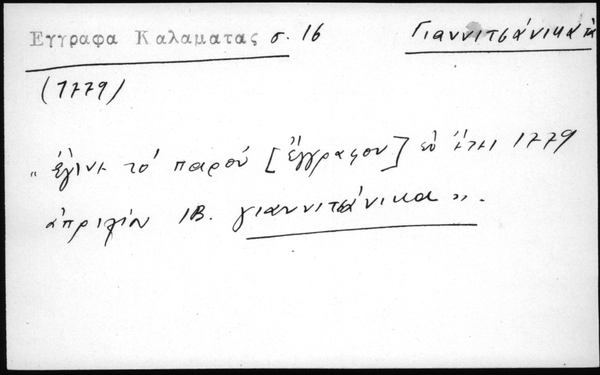 Εγγραφα Καλαματας σ. 16 Γιαννιτσάνικα τα
(1779)
„ ἐγινε τό παρού [ἔγγραφον] ἐν ἔτει 1779
ἀπριλίου ΙΒ. γιαννιτσάνικα ".